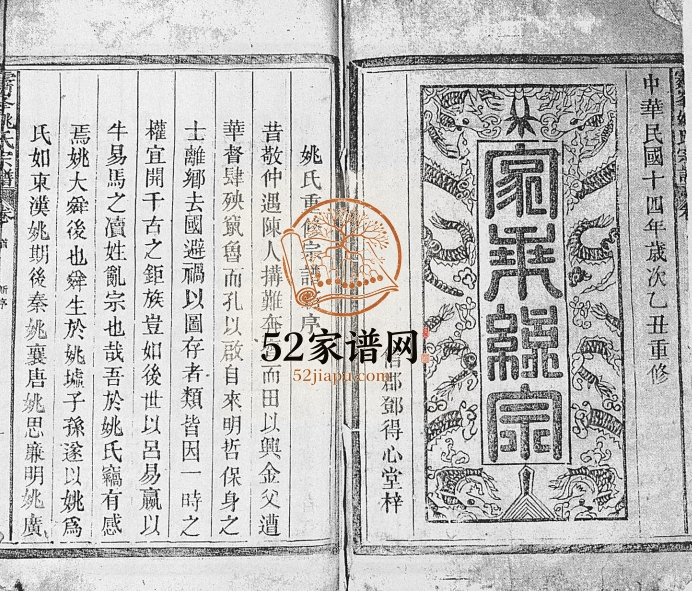 中華民國十四年歲次乙丑重修
家乘總宗
郡鄧得心堂梓
姚氏重修宗譜
序
昔敬仲遇陳人搆難奔
而田以興金父遭
華督肆殃竄魯而孔以啟自來明哲保身之
士離鄉去國避禍以圖存者類皆因一時之
權宜開千古之鉅族豈如後世以呂易嬴以
牛易馬之瀆姓亂宗也哉吾於姚氏竊有感
焉姚大舜後也舜生於姚墟子孫遂以姚為
氏如東漢姚期後秦姚襄唐姚思廉明姚廣
姚氏宗譜
52家谱网
52jiapu.com